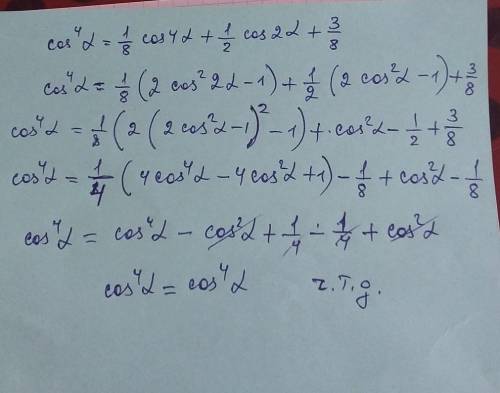 cos⁴α = 1/8 cos4α + 1/2 cos2α + 3/8
cos⁴α = 1/8 (2cos²2α - 1) + 1/2 (2cos²α - 1) + 3/8
cos⁴α = 1/8 (2(2cos²α - 1)² - 1) + cos²α - 1/2 + 3/8
cos⁴α = 1/4 (4cos⁴α - 4cos²α + 1) - 1/8 + cos²α - 1/8
cos⁴α = cos⁴α - cos²α + 1/4 - 1/4 + cos²α
cos⁴α = cos⁴α ч.т.д.